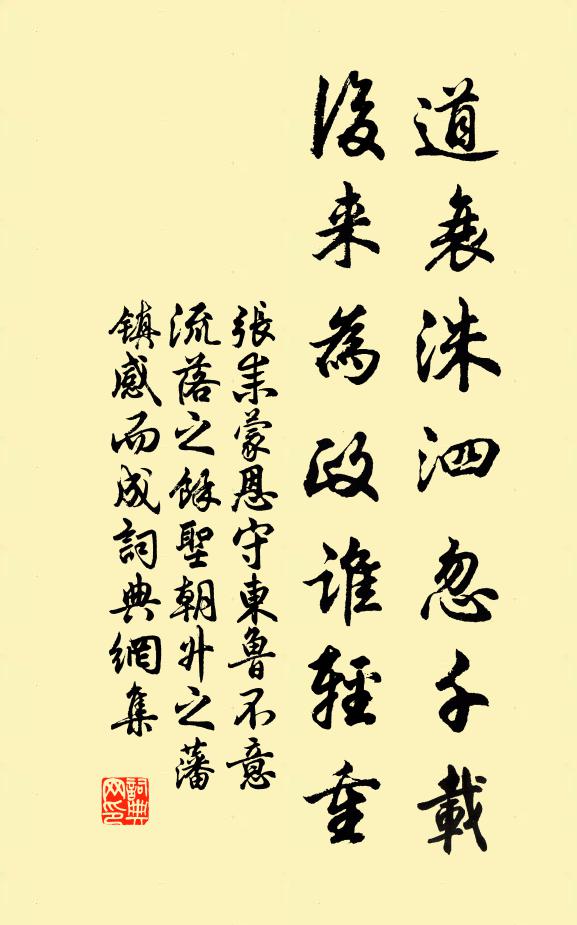 道衰洙泗忽千載
後来為政誰輕重
張耒蒙恩守東魯不意
流落之餘聖朝升之藩
鎮感而成詞典網集
詞典網印